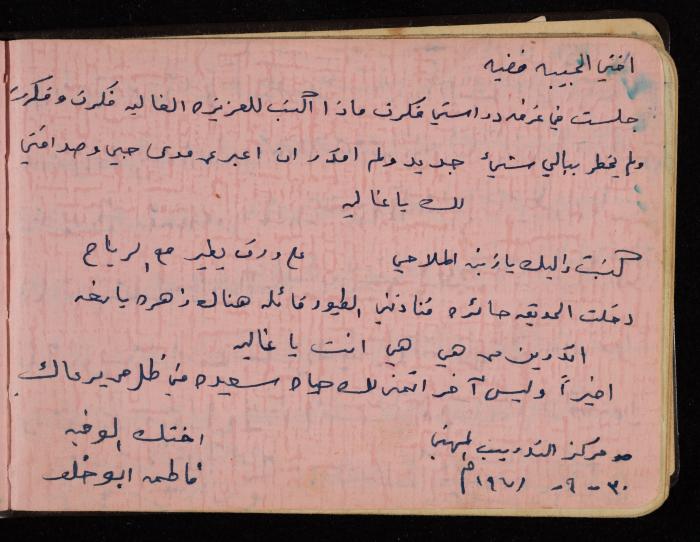 اختي الحبيبه فضيه
جلست في غرفه دراستي فكرت ماذا اكتب للعزيزه الغاليه فكرت وفكرت
ولم يخطر ببالي شيء جديد ولم اقدر ان اعبر عن مدى حبي وصداقتي
لك يا غاليه
كتبت اليك يا زين الملاحي على ورق يطير مع الرياح
دخلت الحديقه حائره فنادتني الطيور قائله هناك زهره يانعه
اتدرين من هي هي انت يا غاليه
اخيراً وليس آخر اتمنى لك حياه سعيده في ظل من يرعاك
مركز التدريب المهني اختك الوفيه
٣٠ - ٩ - فاطمه ابو